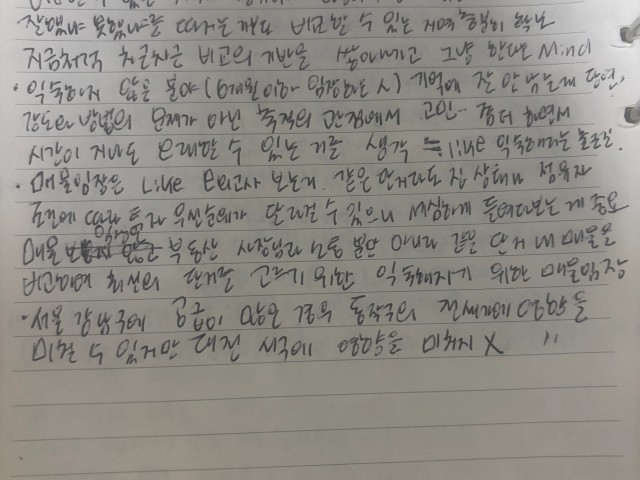 잘했냐 못했냐를 따지는 게 비교할 수 있는 지역 확보
지금처럼 차근차근 비교의 기반을 쌓아가고 그냥 한다는 Mind
· 익숙하지 않은 분야 (6개월이하 임장하는 시) 기억에 잘 안 남는게 당연,
강도와 방법의 문제가 아닌 축적의 관점에서 고민.. 좀 더 하면서
시간이 지나도 오래할 수 있는 거를 생각 like 익숙해지는
· 매물임장은 Like 모의고사 보는거. 같은 단지라도 집 상태나 점유자
조건에 따라 투자 우선순위가 달라질 수 있으니 세심하게 들여다보는 게 중요
매물 임장은 부동산 사장님과 노릇 뿐만 아니라 같은 단지 내 매물을
비교하여 최선의 단지를 고르기 위한 익숙해지기 위한 매물임장
· 서울 강남구에 공급이 많은 경우 동작구의 전세가에 영향을
미칠 수 있지만 대전 서구에 영향을 미치지 X